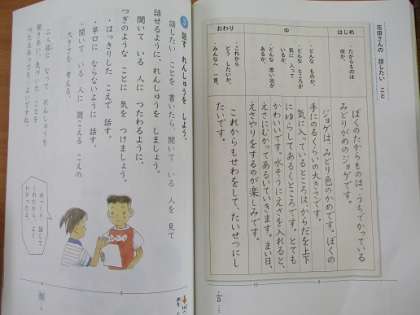 宮田さんの 話したい こと
はじめ
・たからものは
何か。
中
・どんな ものか。
・どんな ところが
気に 入って
いるか。
・どんな 思い出が
あるか。
おわり
・これから
どう したいか。
・みんなへ 一言。
ぼくのたからものは、うちでかっている
みどりがめのジョゲです。
ジョゲは、みどり色のかめです。ぼくの
手にのるくらいの大きさです。
気に入っているところは、からだを上下
にゆらしてあるくところです。とても
かわいいです。水そうにえさを入れると、
えさにむかってあるいていきます。まい日、
えさやりをするのが楽しみです。
これからもせわをして、たいせつにし
たいです。
3 話す れんしゅうを しよう。
話したい ことを 書いたら、聞いて いる 人を 見て
話せるように、れんしゅうを しましょう。
聞いて いる 人に つたわるように、
つぎのような ことに 気を つけましょう。
・はっきりした こえで 話す。
・早口に ならないように 話す。
・聞いて いる 人に 聞こえる こえの
大きさを 考える。